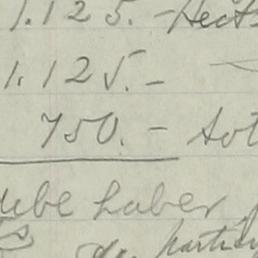 1.125.-Hect
1.125.-
750.- sot
debe haber
parti